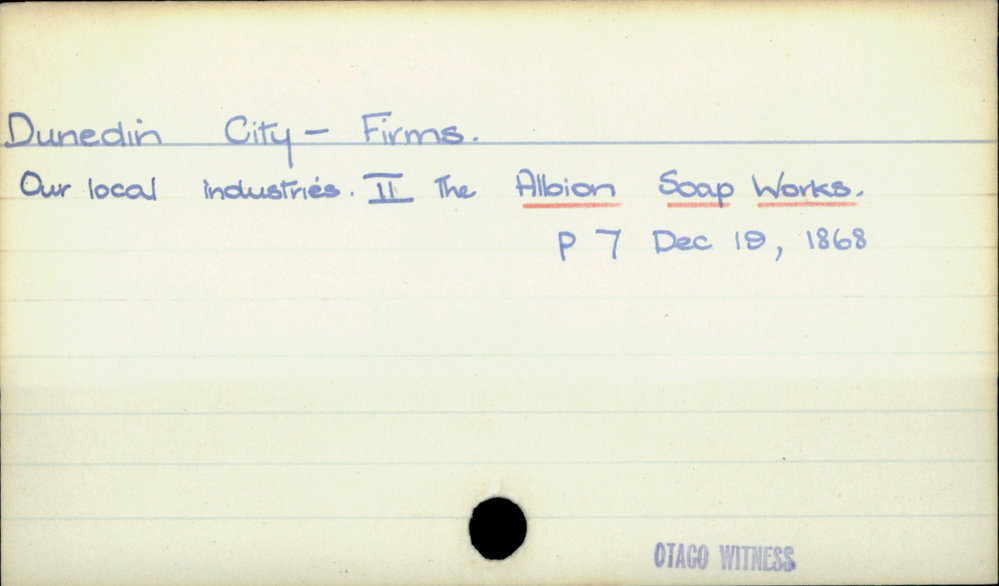 Dunedin City - Firms.
Our local industries. II The Albion Soap Works.
p 7 Dec 19, 1868
OTAGO WITNESS